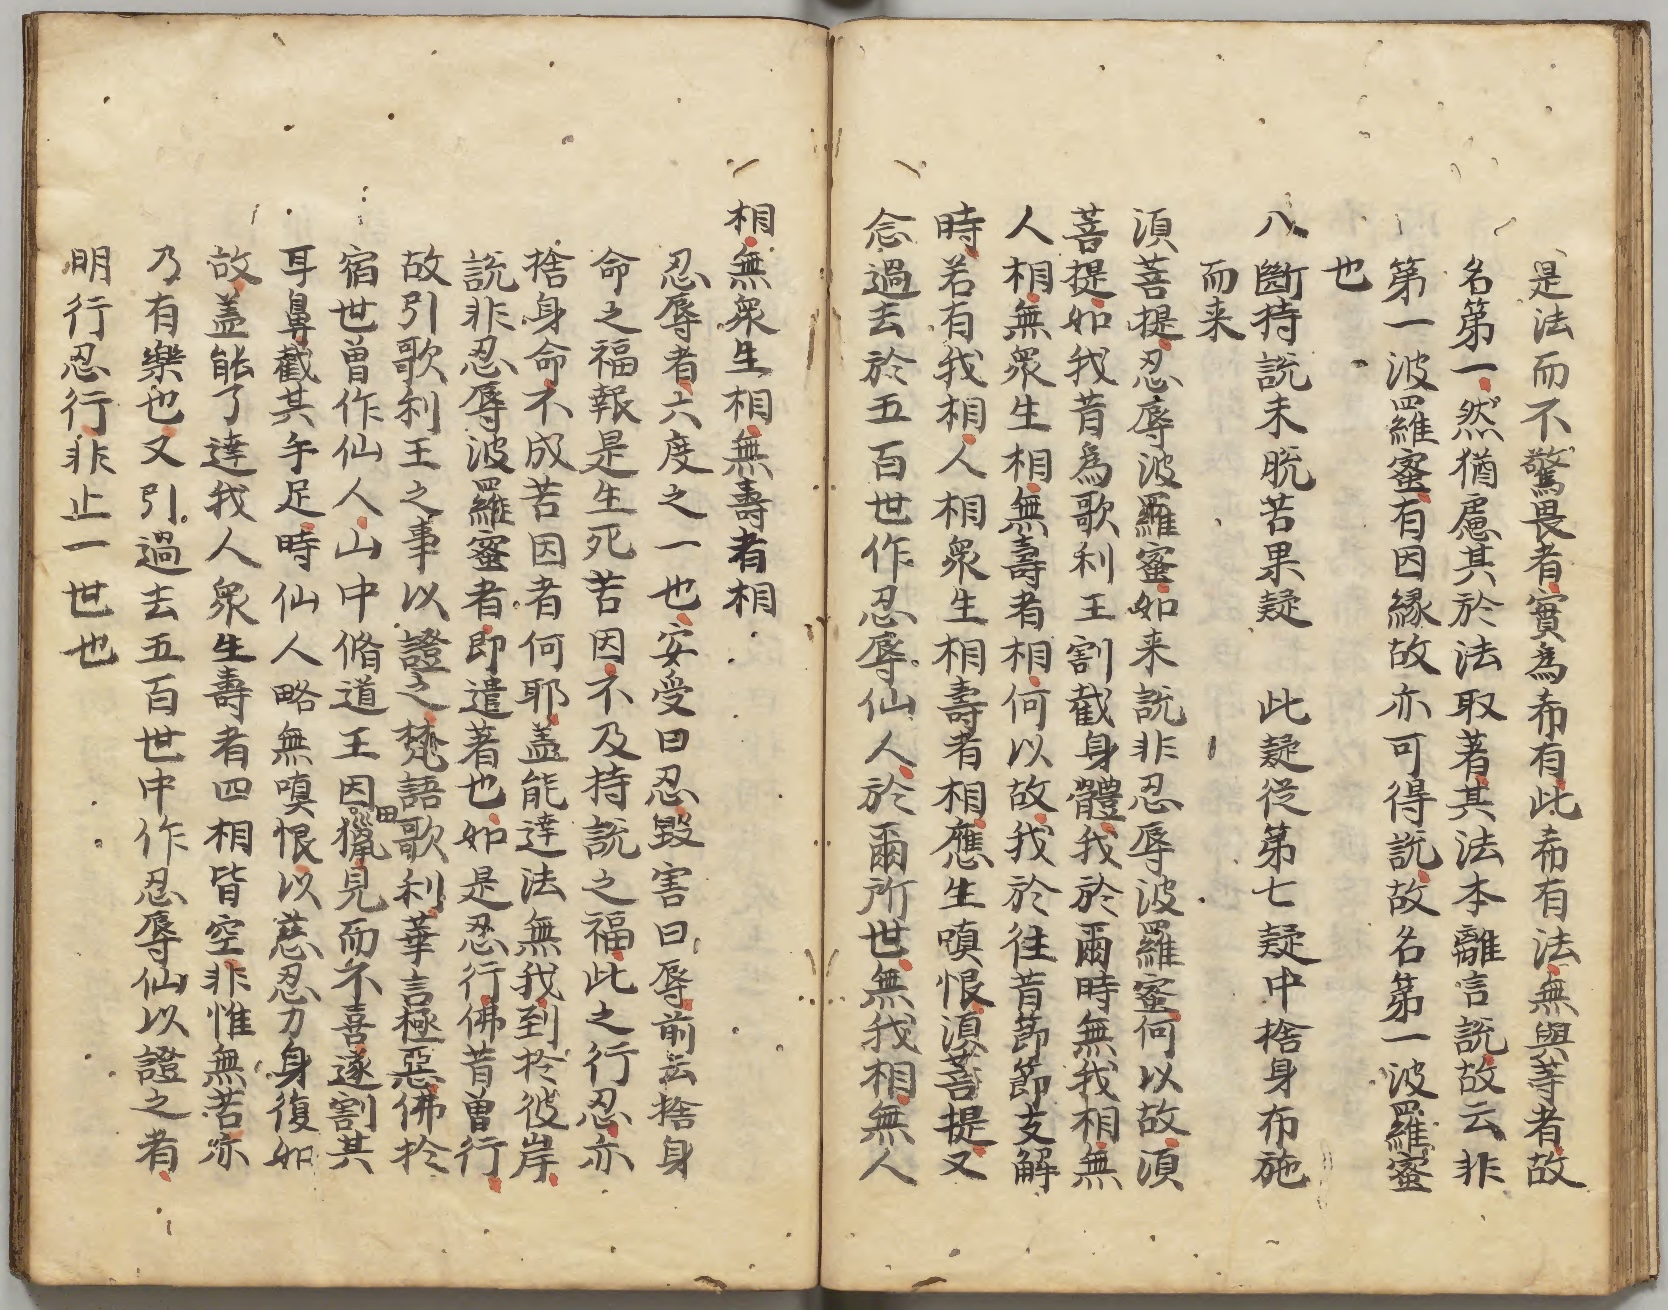 是法而不驚畏者實爲希有此希有法無與等者故
名第一然猶慮其於法取著其法本離言說故云非
第一波羅蜜有因緣故亦可得說故名第一波羅蜜
也
八斷持說未脫苦果疑　此疑從第七疑中捨身布施
而来
須菩提忍辱波羅蜜如来說非忍辱波羅蜜何以故須
菩提如我昔爲歌利王割截身體我於爾時無我相無
人相無衆生相無壽者相何以故我於往昔節節支解
時若有我相人相衆生相壽者相應生嗔恨須菩提又
念過去於五百世作忍辱仙人於爾所世無我相無人
相無衆生相無壽者相
忍辱者六度之一也安受曰忍毀害曰辱前云捨身
命之福報是生死苦因不及持說之福此之行忍亦
捨身命不成苦因者何耶盖能達法無我到於彼岸
說非忍辱波羅蜜者即遣著也如是忍行佛昔曾行
故引歌利王之事以證之梵語歌利華言極惡佛於
宿世曾作仙人山中脩道王因田獵見而不喜遂割其
耳鼻截其手足時仙人略無嗔恨以慈忍力身復如
故盖能了達我人衆生壽者四相皆空非惟無苦亦
乃有樂也又引過去五百世中作忍辱仙以證之者
明行忍行非止一世也